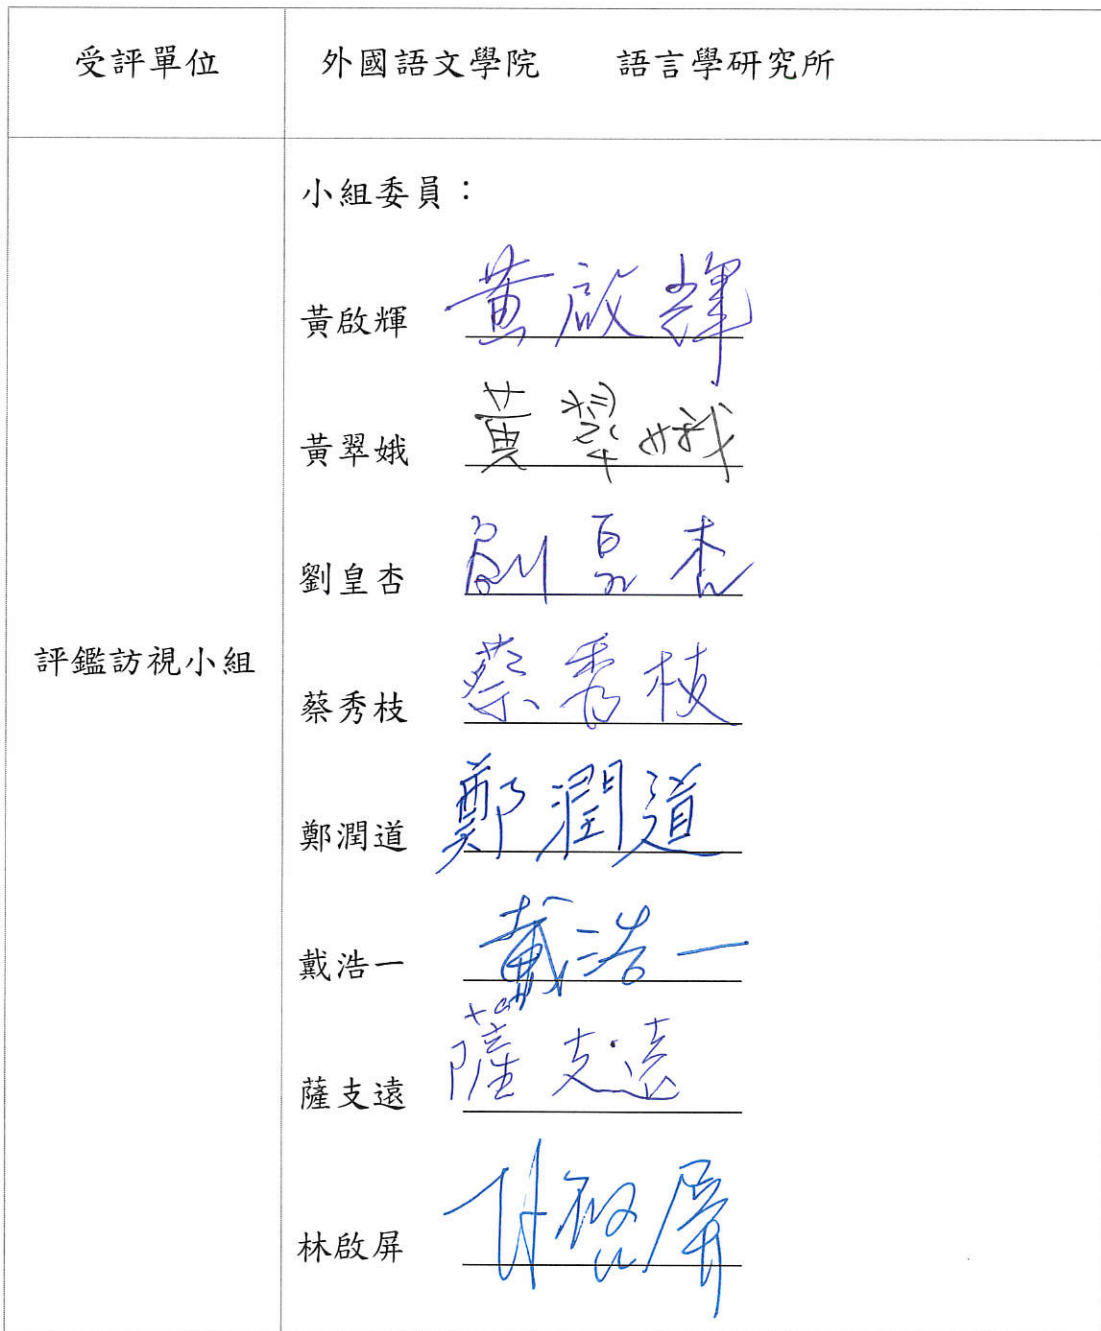 受評單位 外國語文學院 語言學研究所
小組委員：
黃啟輝 黃啟輝
黃翠娥 黃翠娥
劉皇杏 劉皇杏
評鑑訪視小組
蔡秀枝 蔡秀枝
鄭潤道 鄭潤道
戴浩一 戴浩一
薩支遠 薩支遠
林啟屏 林啟屏